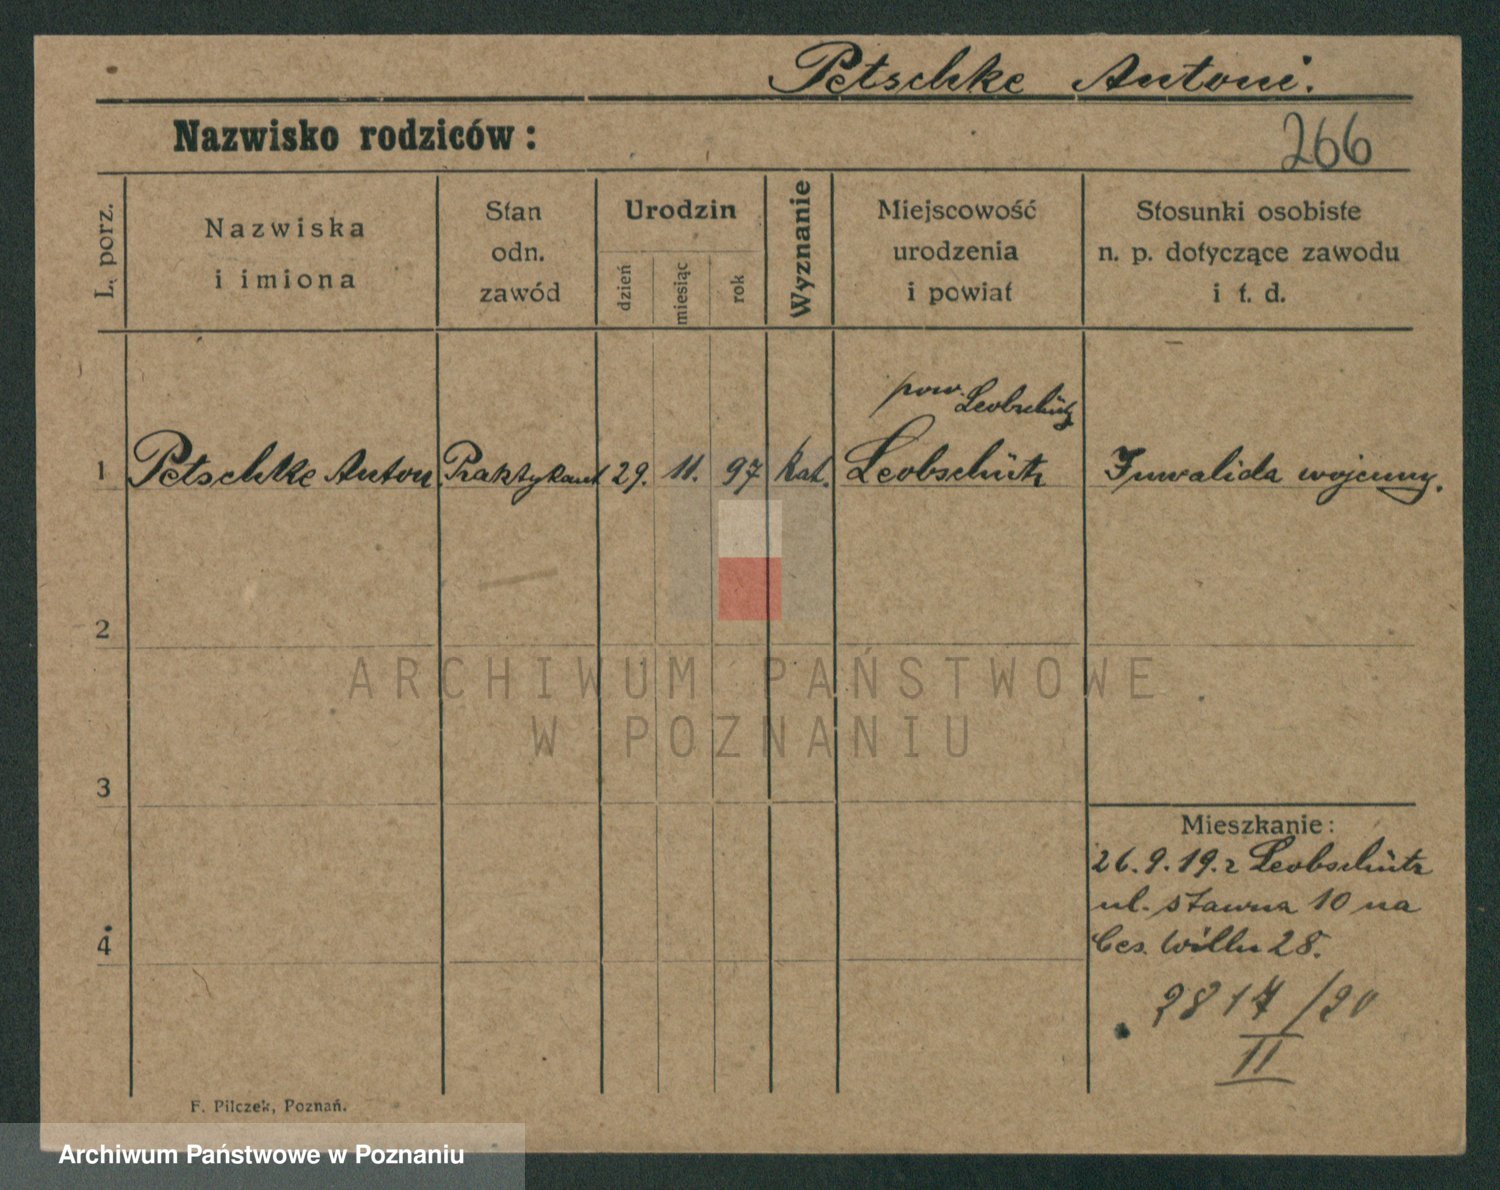 Petschke Antoni.
Nazwisko rodziców:
266
L. porz.
Nazwiska
i imiona
Stan
odn.
zawód
Urodzin
dzień
miesiąc
rok
Wyznanie
Miejscowość
urodzenia
i powiat
Stosunki osobiste
n. p. dotyczące zawodu
i t. d.
pow. Leobschütz
1 Petschke Anton Praktykant 29. 11. 97 kat. Leobschütz Inwalida wojenny.
2
ARCHIWUM PAŃSTWOWE
W POZNANIU
3
Mieszkanie:
26.9.19. z Leobschütz
ul. stawna 10 na
Ces. Wilh. 28.
4
2817/20
II
F. Pilczek, Poznań.
Archiwum Państwowe w Poznaniu